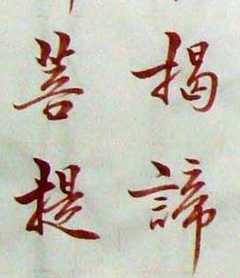 揭諦
菩提